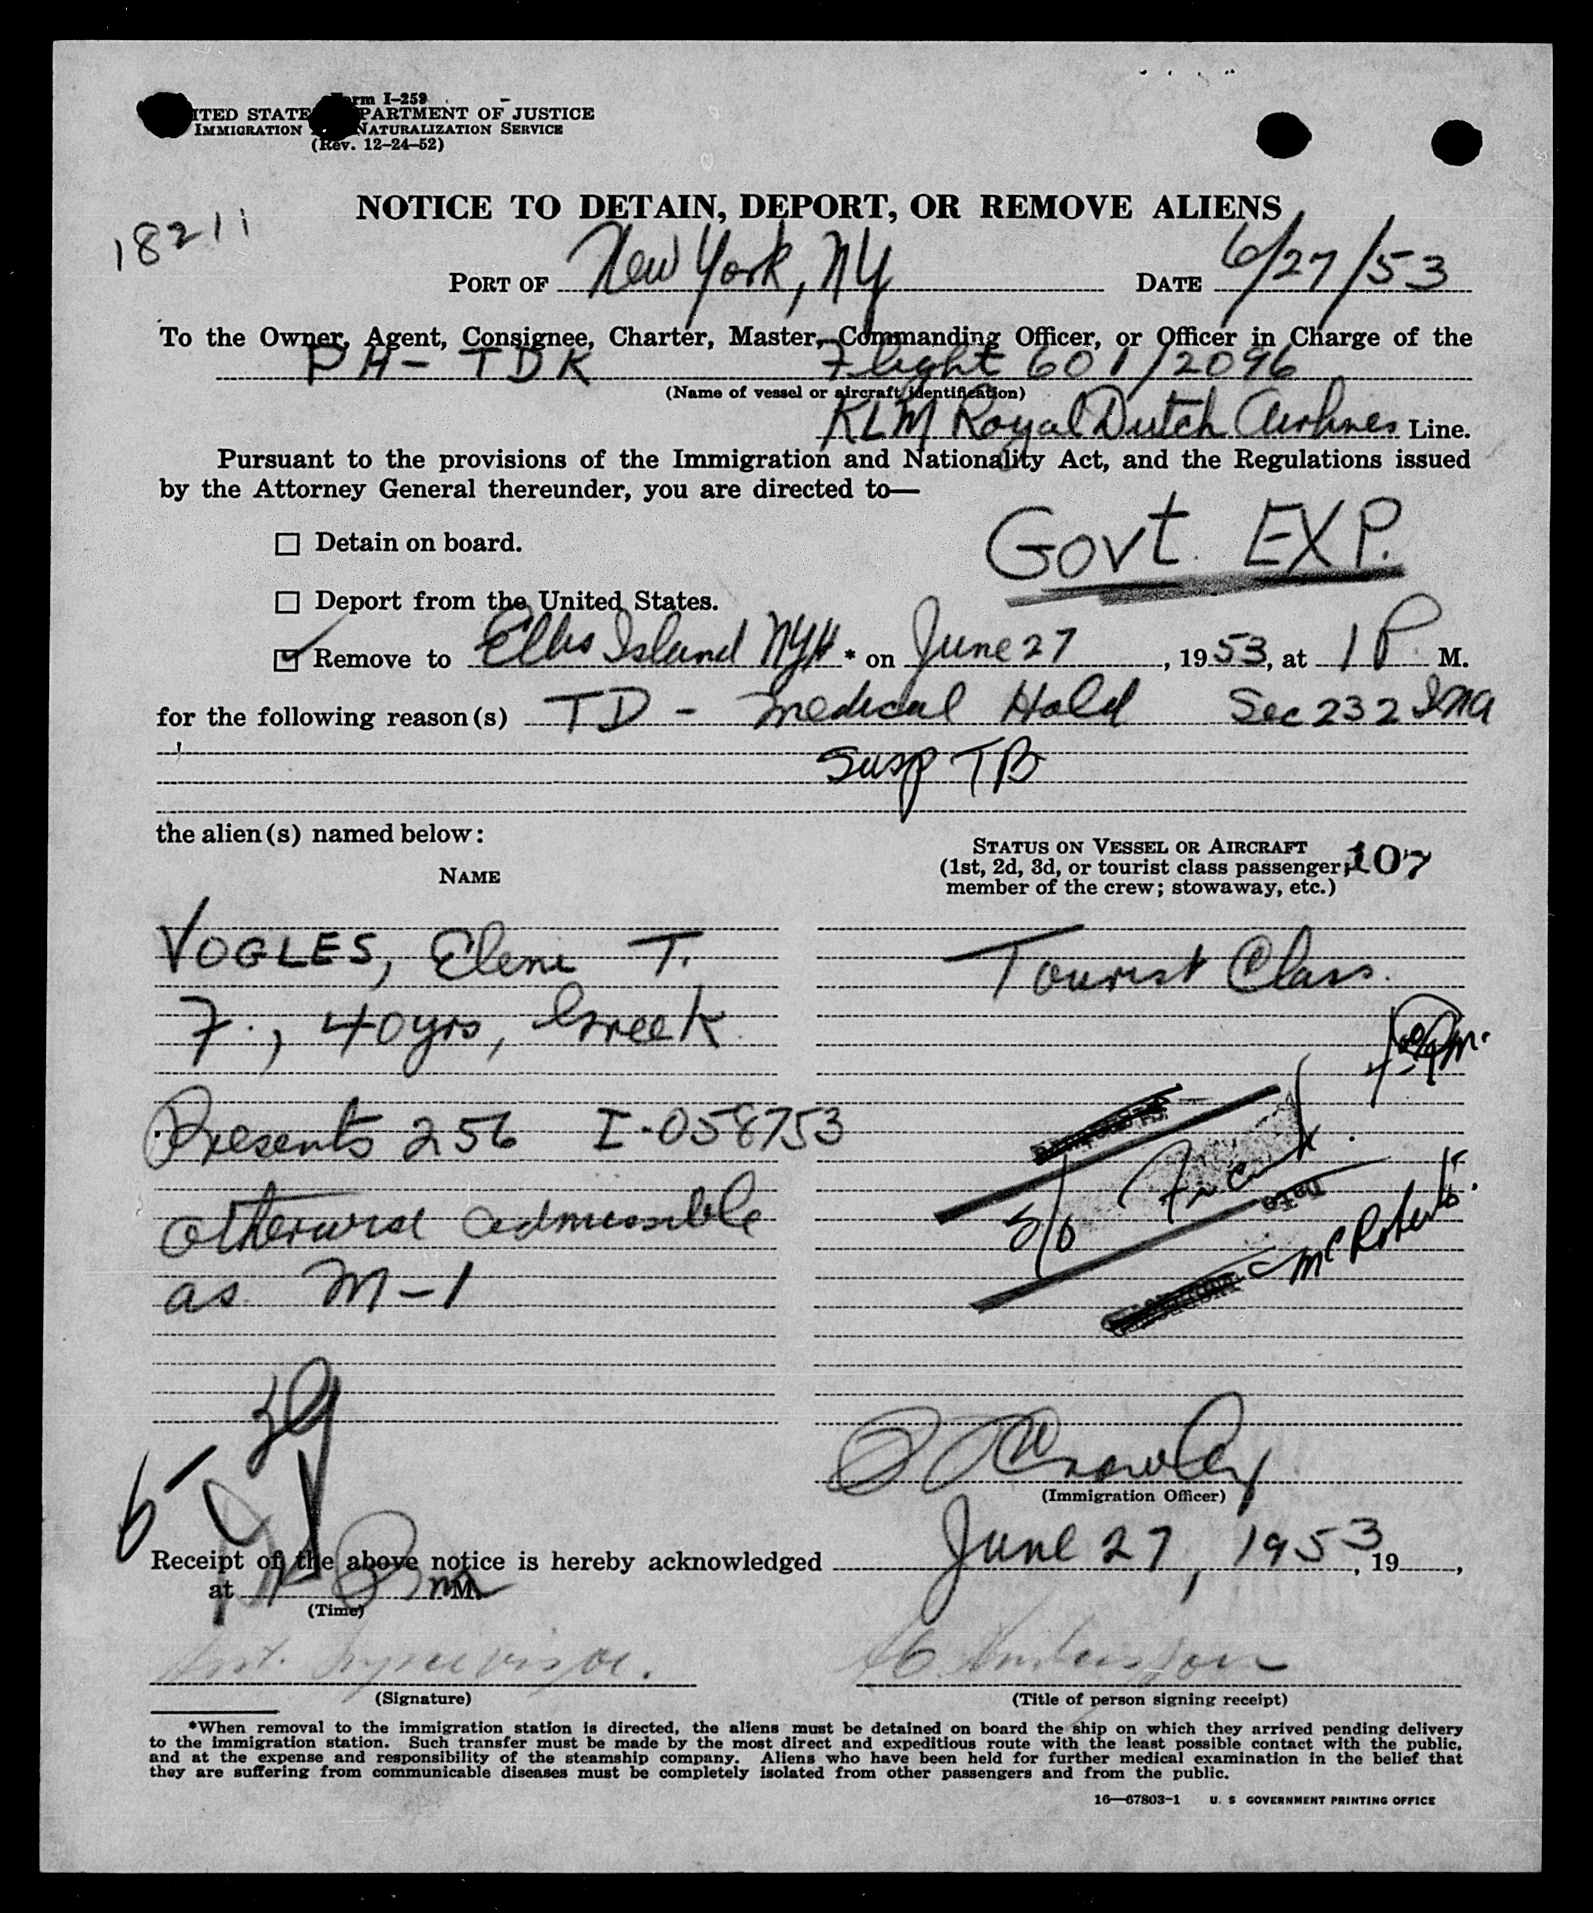 Form I-259
UNITED STATES DEPARTMENT OF JUSTICE
IMMIGRATION AND NATURALIZATION SERVICE
(Rev. 12-24-52)
18211
NOTICE TO DETAIN, DEPORT, OR REMOVE ALIENS
PORT OF New York, NY DATE 6/27/53
To the Owner, Agent, Consignee, Charter, Master, Commanding Officer, or Officer in Charge of the
PH-TDK Flight 601/2096
(Name of vessel or aircraft identification)
KLM Royal Dutch Airlines Line.
Pursuant to the provisions of the Immigration and Nationality Act, and the Regulations issued
by the Attorney General thereunder, you are directed to—
Govt. EXP.
☐ Detain on board.
☐ Deport from the United States.
☑ Remove to Ellis Island NYH * on June 27, 1953, at 1 P M.
for the following reason(s) TD - medical Hold Sec 232 Ina
Susp TB
the alien(s) named below:
STATUS ON VESSEL OR AIRCRAFT
(1st, 2d, 3d, or tourist class passenger; 107
member of the crew; stowaway, etc.)
NAME
VOGLES, Eleni T. Tourist Class.
F., 40 yrs, Greek
Presents 256 I-058753
otherwise admissible
as M-1
S/O
Date
McRoberts.
Crowley
(Immigration Officer)
Receipt of the above notice is hereby acknowledged June 27, 1953, 19 ,
at M.
(Time)
Ast. Supervisor.
(Signature) (Title of person signing receipt)
*When removal to the immigration station is directed, the aliens must be detained on board the ship on which they arrived pending delivery
to the immigration station. Such transfer must be made by the most direct and expeditious route with the least possible contact with the public,
and at the expense and responsibility of the steamship company. Aliens who have been held for further medical examination in the belief that
they are suffering from communicable diseases must be completely isolated from other passengers and from the public.
16—67803-1 U. S GOVERNMENT PRINTING OFFICE